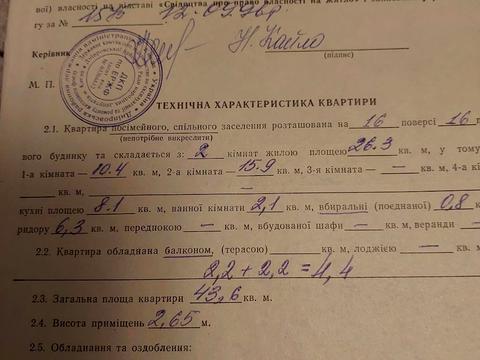 ової) власності на підставі «Свідоцтва про право власності на житло»
гу за № 1575 12.09.96р.
Керівник Н. Кайло
(підпис)
М. П.
ТЕХНІЧНА ХАРАКТЕРИСТИКА КВАРТИРИ
2.1. Квартира посімейного, спільного заселення розташована на 16 поверсі 16 п
(непотрібне викреслити)
вого будинку та складається з: 2 кімнат жилою площею 26.3 кв. м, у тому
1-а кімната — 10.4 кв. м, 2-а кімната — 15.9 кв. м, 3-я кімната — — кв. м, 4-а кі
— кв. м, —
кухні площею 8.1 кв. м, ванної кімнати 2,1 кв. м, вбиральні (поєднаної) 0,8 к
ридору 6,3 кв. м, передпокою — кв. м, вбудованої шафи — кв. м, веранди —
2.2. Квартира обладнана балконом, (терасою) кв. м, лоджією — кв. м
2,2 + 2,2 = 4,4
2.3. Загальна площа квартири 43,6 кв. м.
2.4. Висота приміщень 2,65 м.
2.5. Обладнання та оздоблення: